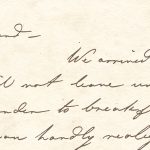 and -
We arrived
not leave un
to breakf
can hardly realiz